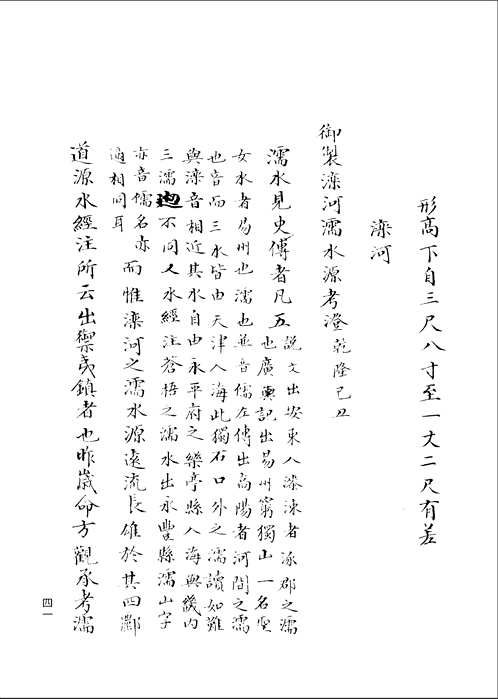 形高下自三尺八寸至一丈二尺有差
灤河
御製灤河濡水源考證乾隆己丑
濡水見史傳者凡五說文出安東入漆涑者涿郡之濡
也廣輿記出易州窮獨山一名聖
女水者易州也濡也並音儒左傳出高陽者河間之濡
也音而三水皆由天津入海此獨石口外之濡讀如難
與灤音相近其水自由永平府之樂亭縣入海與畿内
三濡迥不同又水經注蒼梧之濡水出永豐縣濡山字
亦音儒名亦
適相同耳
而惟灤河之濡水源遠流長雄於其四酈
道源水經注所云出禦夷鎮者也昨歲命方觀承考濡
四一